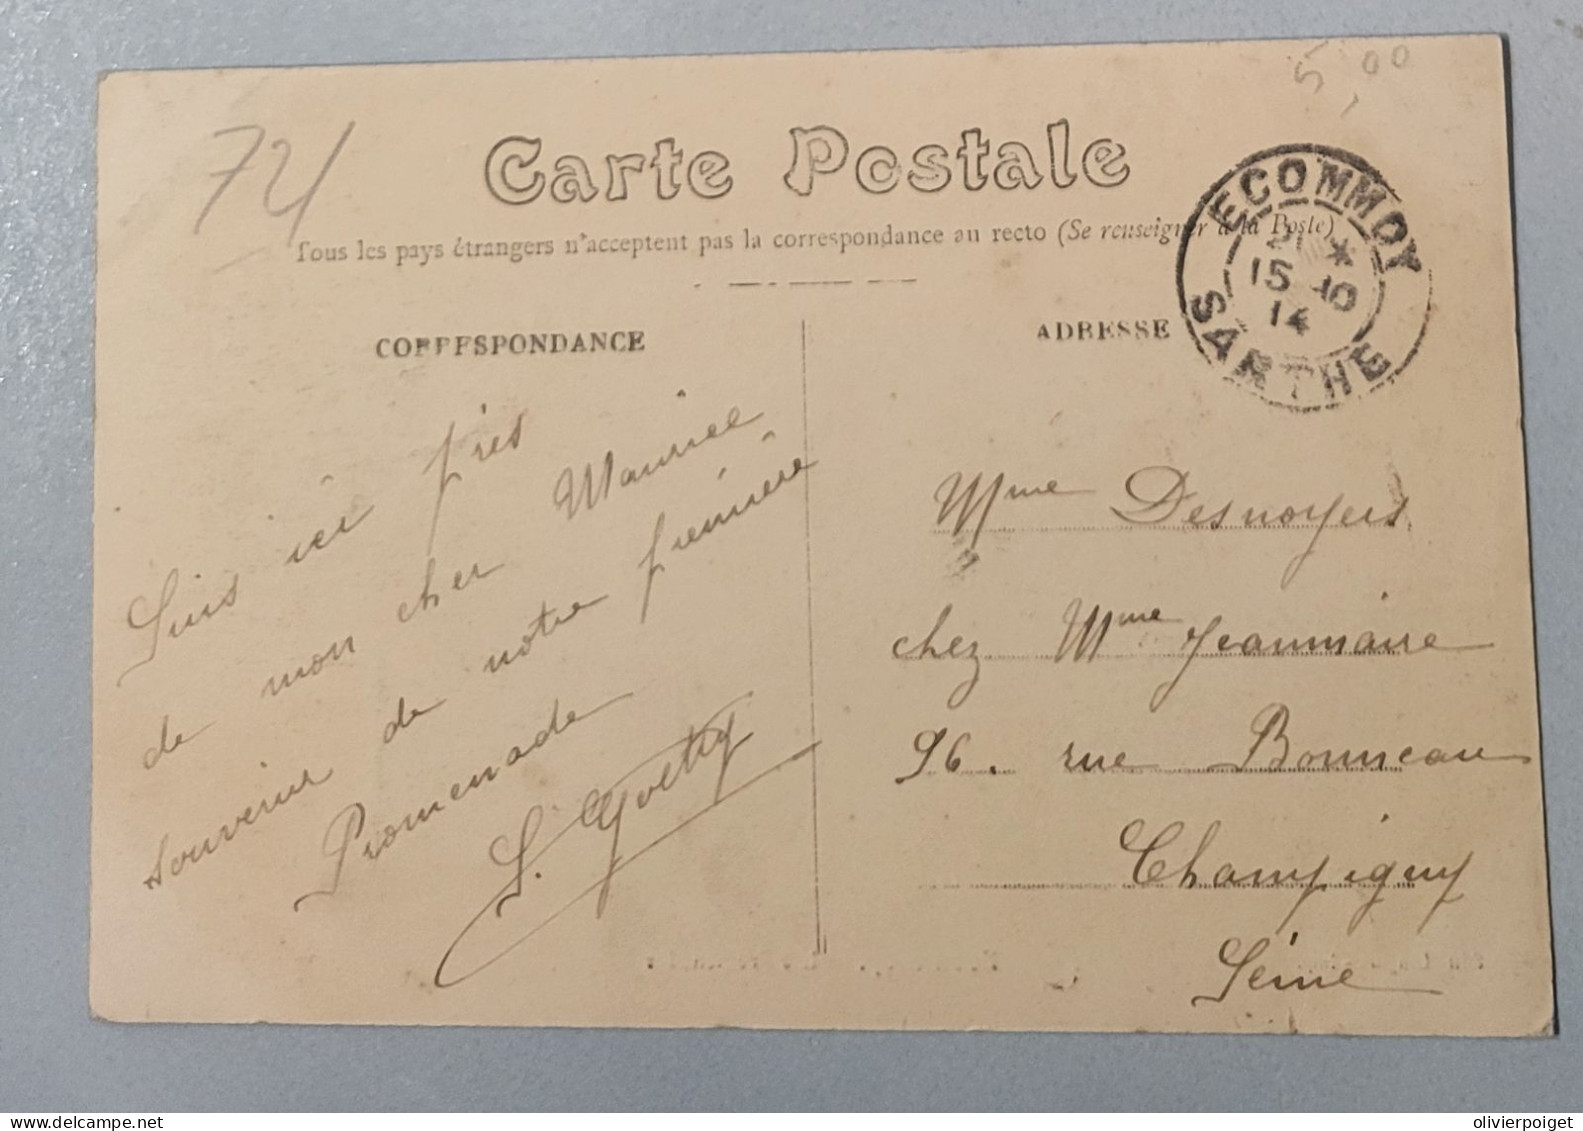 5,00
74
Carte Postale
Tous les pays étrangers n'acceptent pas la correspondance au recto (Se renseigner à la Poste)
ECOMMOY
15 10
14
SARTHE
CORRESPONDANCE
ADRESSE
Suis ici près
de mon cher Maurice
souvenir de notre première
Promenade
Mme Desnoyers
chez Mme Jeanmaire
96. rue Bonneau
Champigny
Seine
delcampe.net
olivierpoiget